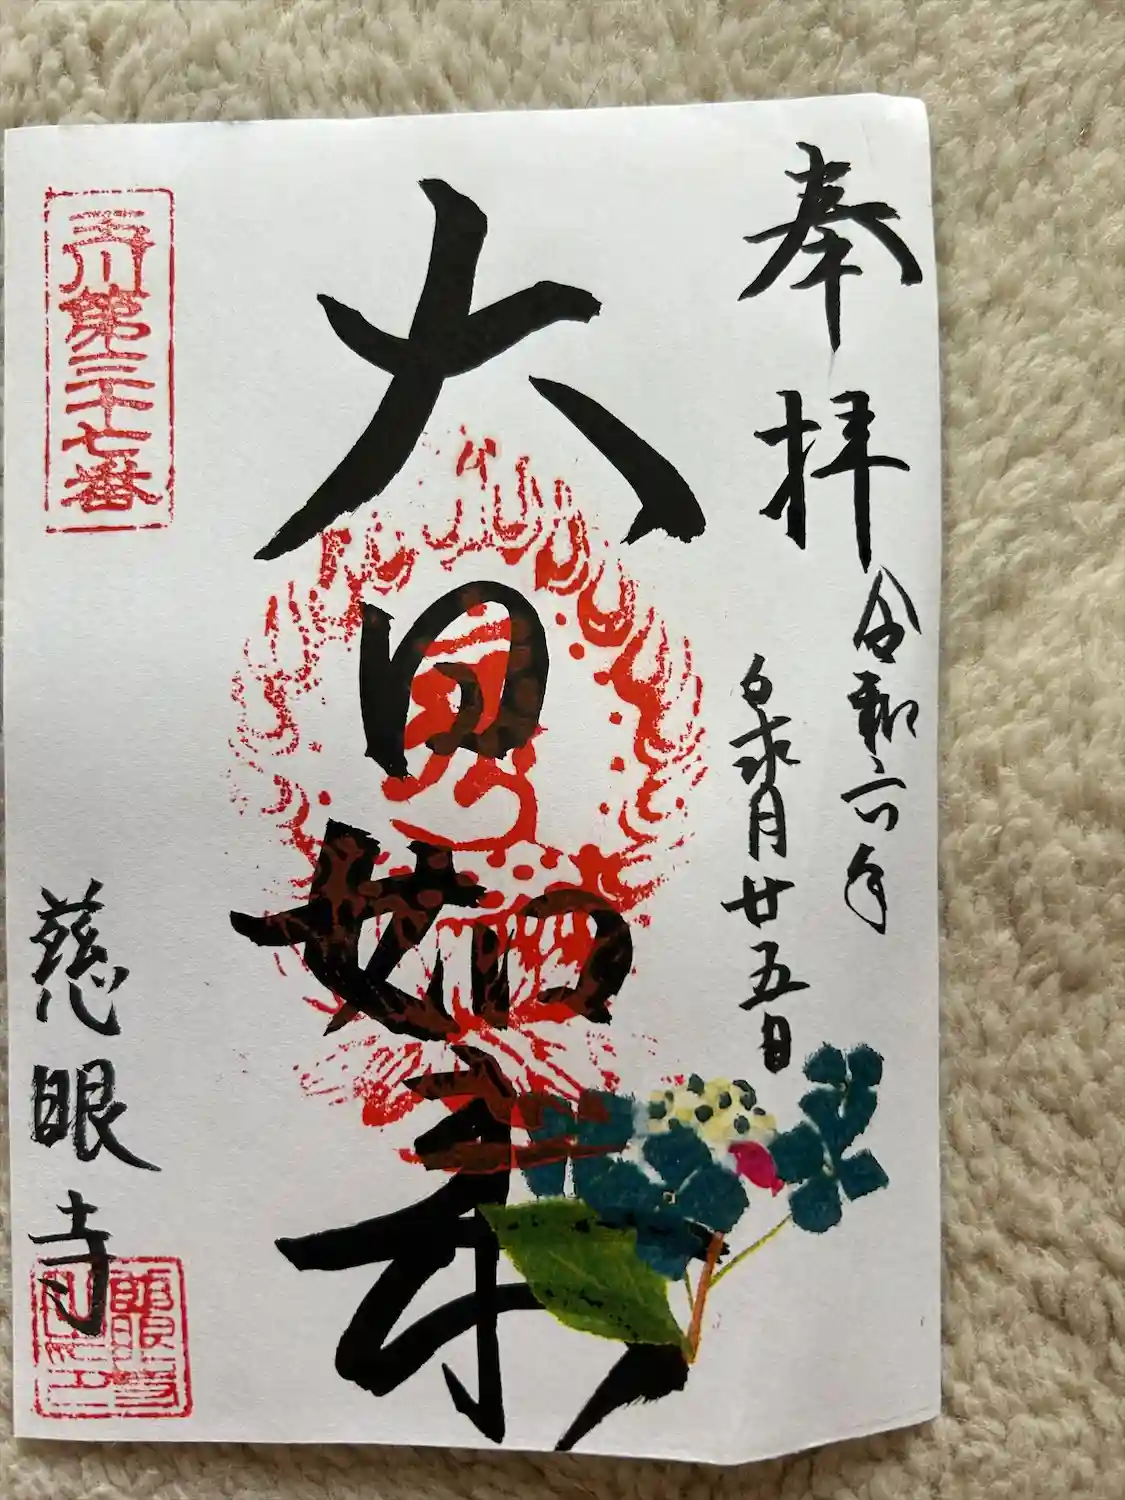 奉拝
令和六年
皐月廿五日
大日如来
玉川第三十七番
慈眼寺